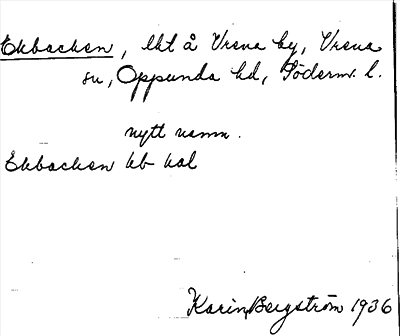 Ekbacken, lht å Vrena by, Vrena
sn, Oppunda hd, Söderm. l.
nytt namn.
Ekbacken kb kal
Karin Bergström 1936